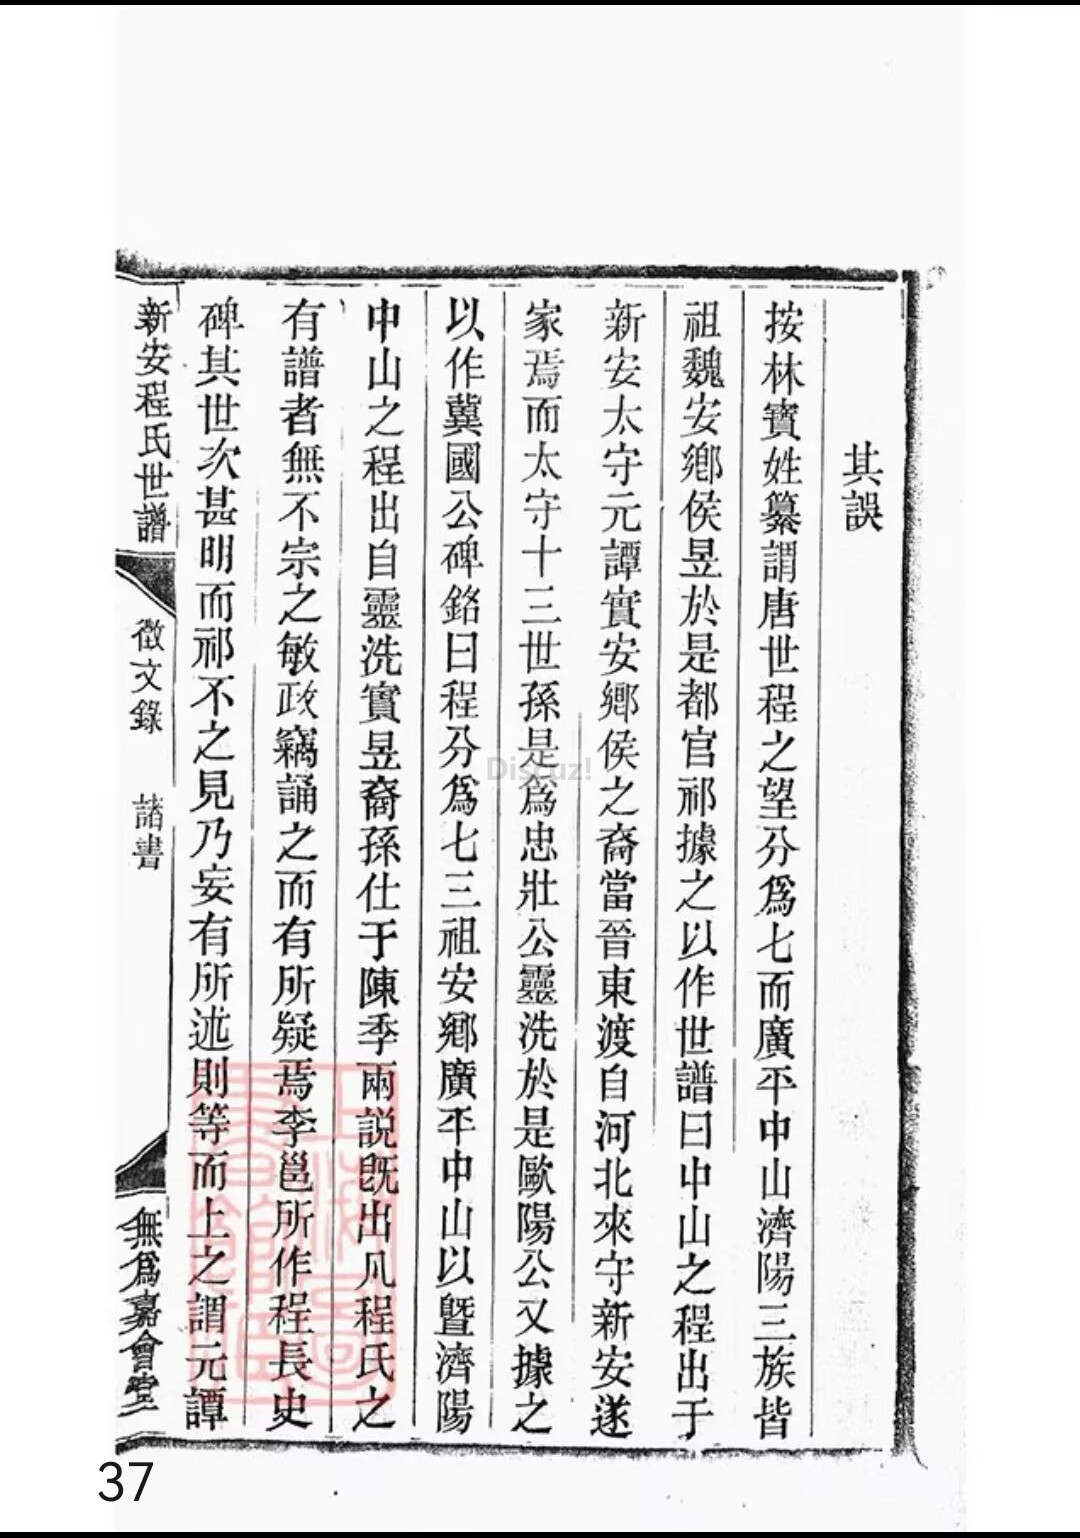 其誤
按林寶姓纂謂唐世程之望分爲七而廣平中山濟陽三族皆
祖魏安鄉侯昱於是都官祁據之以作世譜曰中山之程出于
新安太守元譚實安鄉侯之裔當晉東渡自河北來守新安遂
家焉而太守十三世孫是爲忠壯公靈洗於是歐陽公又據之
以作冀國公碑銘曰程分爲七三祖安鄉廣平中山以曁濟陽
中山之程出自靈洗實昱裔孫仕于陳季兩説旣出凡程氏之
有譜者無不宗之敏政竊誦之而有所疑焉李邕所作程長史
碑其世次甚明而祁不之見乃妄有所述則等而上之謂元譚
新安程氏世譜
徵文錄
諸書
無爲嘉會堂
Discuz!
37